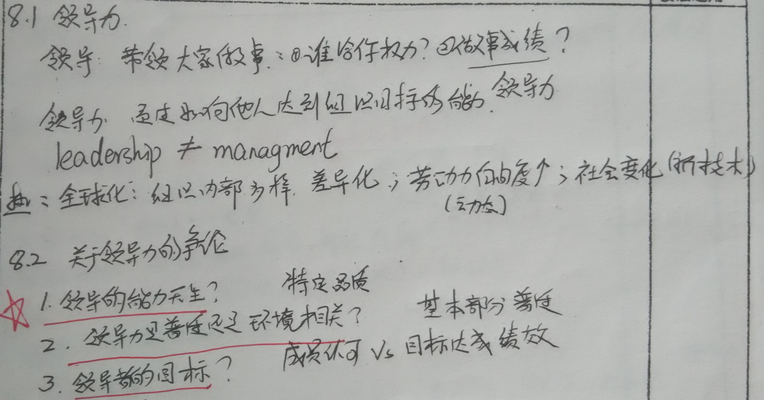 8.1 领导力.
领导: 带领大家做事: ①谁给你权力? ②做事成绩?
领导力: 通过影响他人达到组织目标的能力. 领导力
leadership ≠ managment
: 全球化: 组织内部多样. 差异化; 劳动力自由度↑; 社会变化(新技术)
8.2 关于领导力的争论
1. 领导的能力天生? 特定品质
2. 领导力是普适还是环境相关? 基本部分普适
3. 领导者的目标? 成员认可 Vs 目标达成绩效